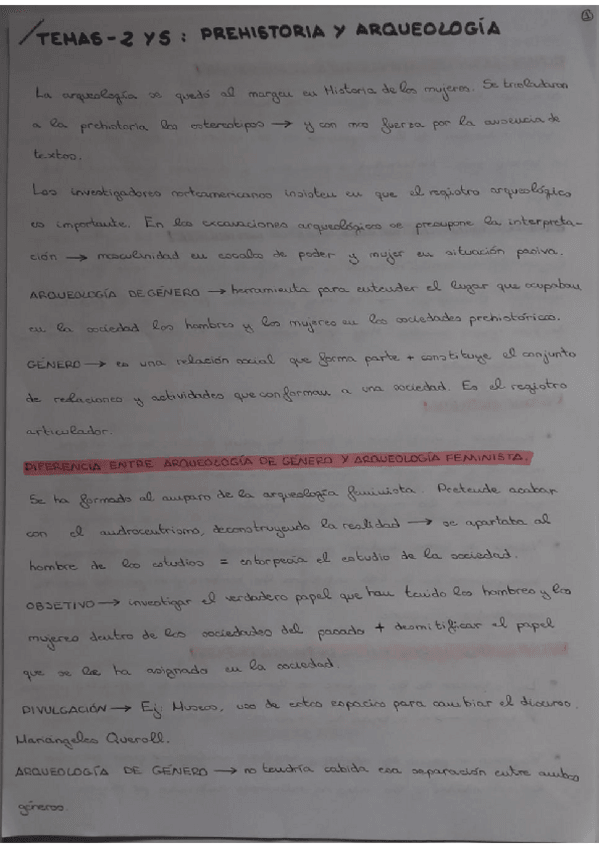 1
/TEMAS-2 Y 5: PREHISTORIA Y ARQUEOLOGÍA
La arqueología se quedó al margen en Historia de las mujeres. Se trasladaron
a la prehistoria los estereotipos → y con más fuerza por la ausencia de
textos.
Los investigadores norteamericanos insisten en que el registro arqueológico
es importante. En las excavaciones arqueológicas se presupone la interpreta-
ción → masculinidad en escalas de poder y mujer en situación pasiva.
ARQUEOLOGÍA DE GÉNERO → herramienta para entender el lugar que ocupaban
en la sociedad los hombres y las mujeres en las sociedades prehistóricas.
GÉNERO → es una relación social que forma parte + constituye el conjunto
de relaciones y actividades que conforman a una sociedad. Es el registro
articulador.
DIFERENCIA ENTRE ARQUEOLOGÍA DE GÉNERO Y ARQUEOLOGÍA FEMINISTA.
Se ha formado al amparo de la arqueología feminista. Pretende acabar
con el androcentrismo, deconstruyendo la realidad → se apartaba al
hombre de los estudios = entorpecía el estudio de la sociedad.
OBJETIVO → investigar el verdadero papel que han tenido los hombres y las
mujeres dentro de las sociedades del pasado + desmitificar el papel
que se les ha asignado en la sociedad.
DIVULGACIÓN → Ej. Museos, uso de estos espacios para cambiar el discurso.
Mariángeles Queroll.
ARQUEOLOGÍA DE GÉNERO → no tendría cabida esa separación entre ambos
géneros.